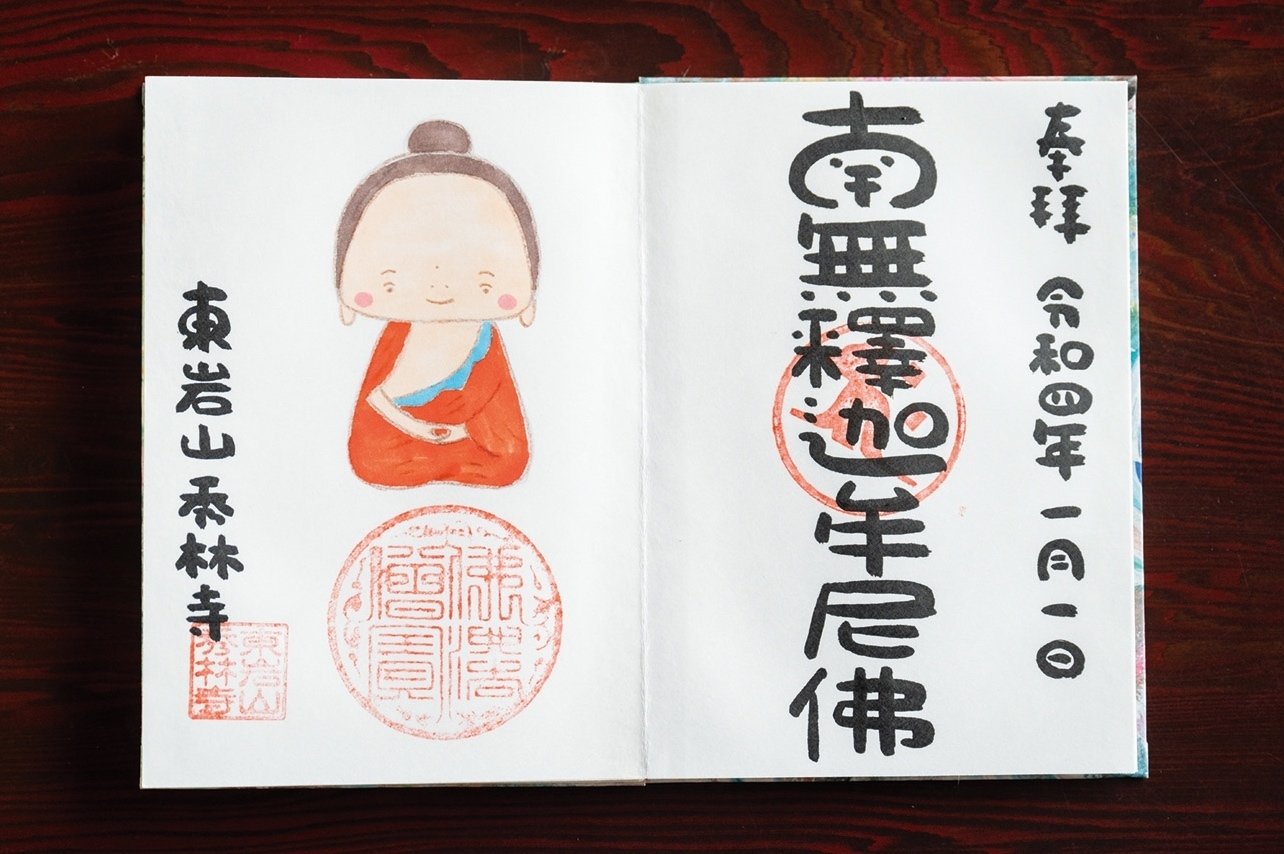 奉拝 令和四年 一月一日
南無釋迦牟尼佛
佛法僧寶
東岩山 秀林寺
東岩山
秀林寺